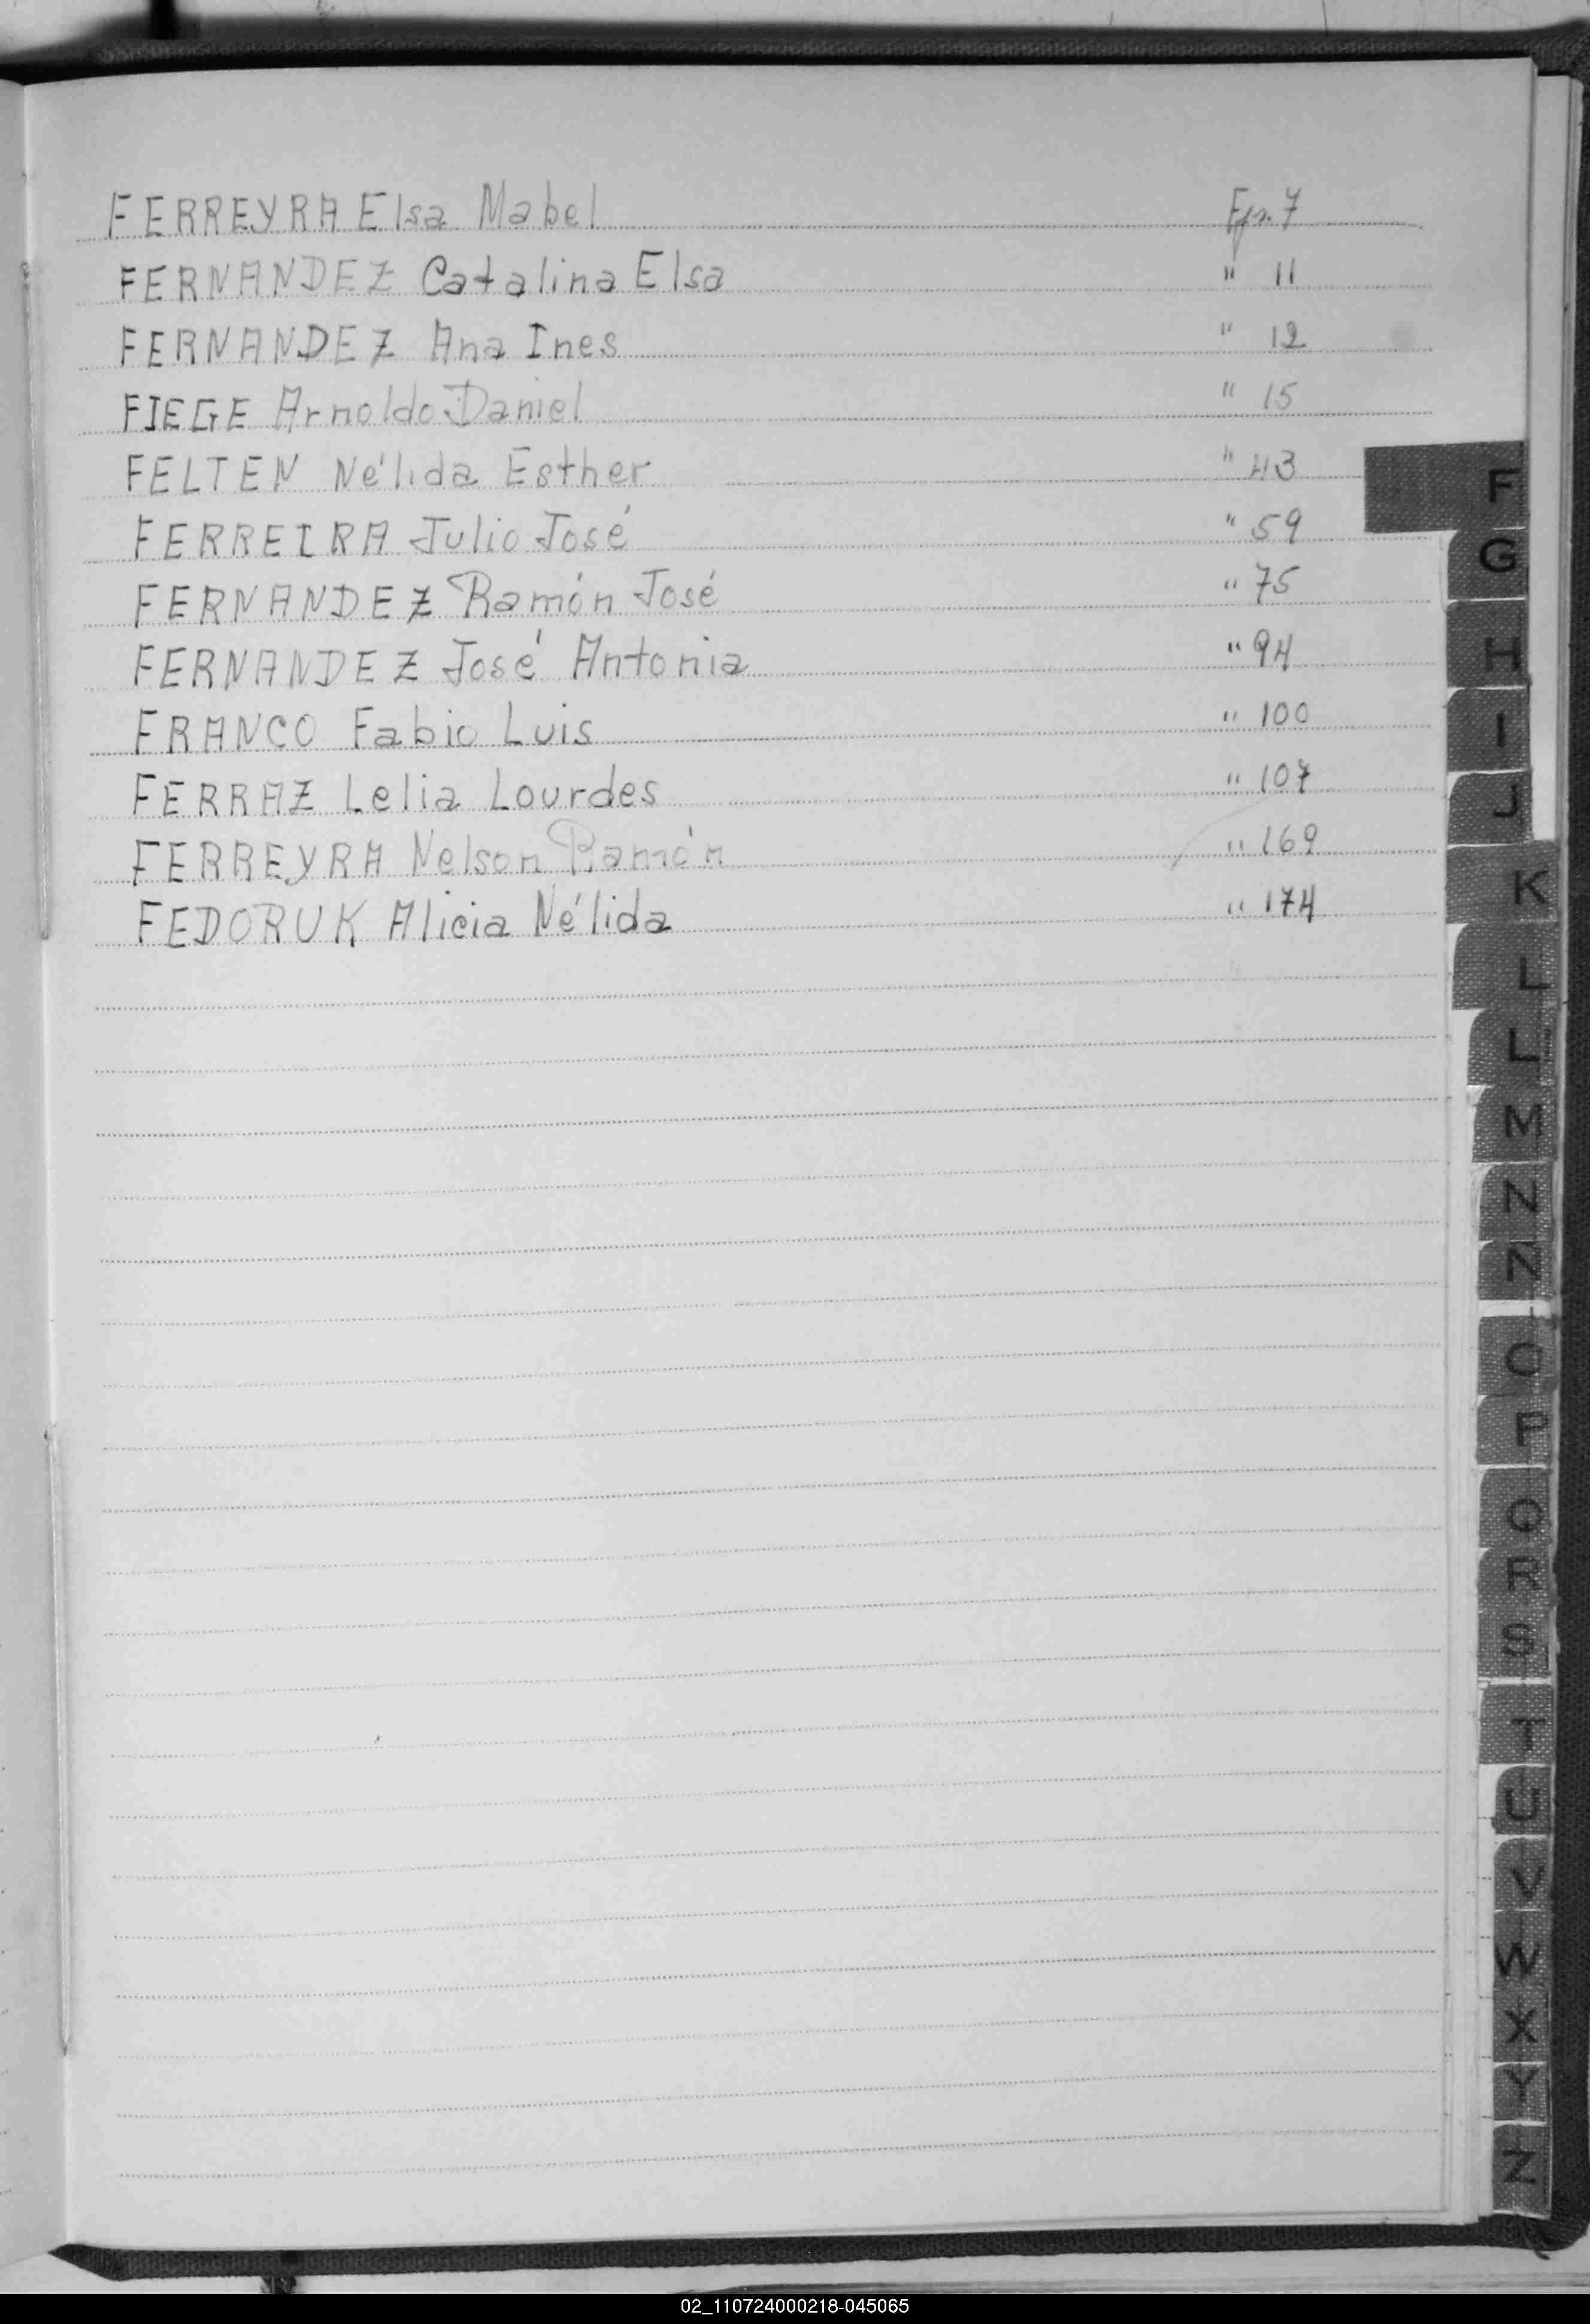 FERREYRA Elsa Mabel Fjs. 7
FERNANDEZ Catalina Elsa " 11
FERNANDEZ Ana Ines " 12
FIEGE Arnoldo Daniel " 15
FELTEN Nélida Esther " 43
FERREIRA Julio José " 59
FERNANDEZ Ramón José " 75
FERNANDEZ José Antonia " 94
FRANCO Fabio Luis " 100
FERRAZ Lelia Lourdes " 107
FERREYRA Nelson Ramón " 169
FEDORUK Alicia Nélida " 174
F
G
H
I
J
K
L
L
M
N
N
O
P
Q
R
S
T
U
V
W
X
Y
Z
02_110724000218-045065